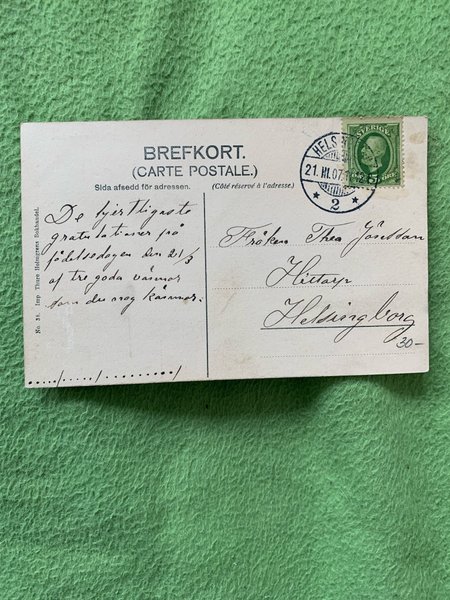 BREFKORT.
(CARTE POSTALE.)
Sida afsedd för adressen.
(Côté réservé à l'adresse.)
De hjertligaste
gratulationer på
födelsedagen den 21/3
af tre goda vänner
som du nog känner.
...../...../........../
Fröken Thea
Hittarp
Helsingborg
30-
SVERIGE
HELS
21.III.07.
2
No. 38. Imp. Thure Holmgrens Bokhandel.